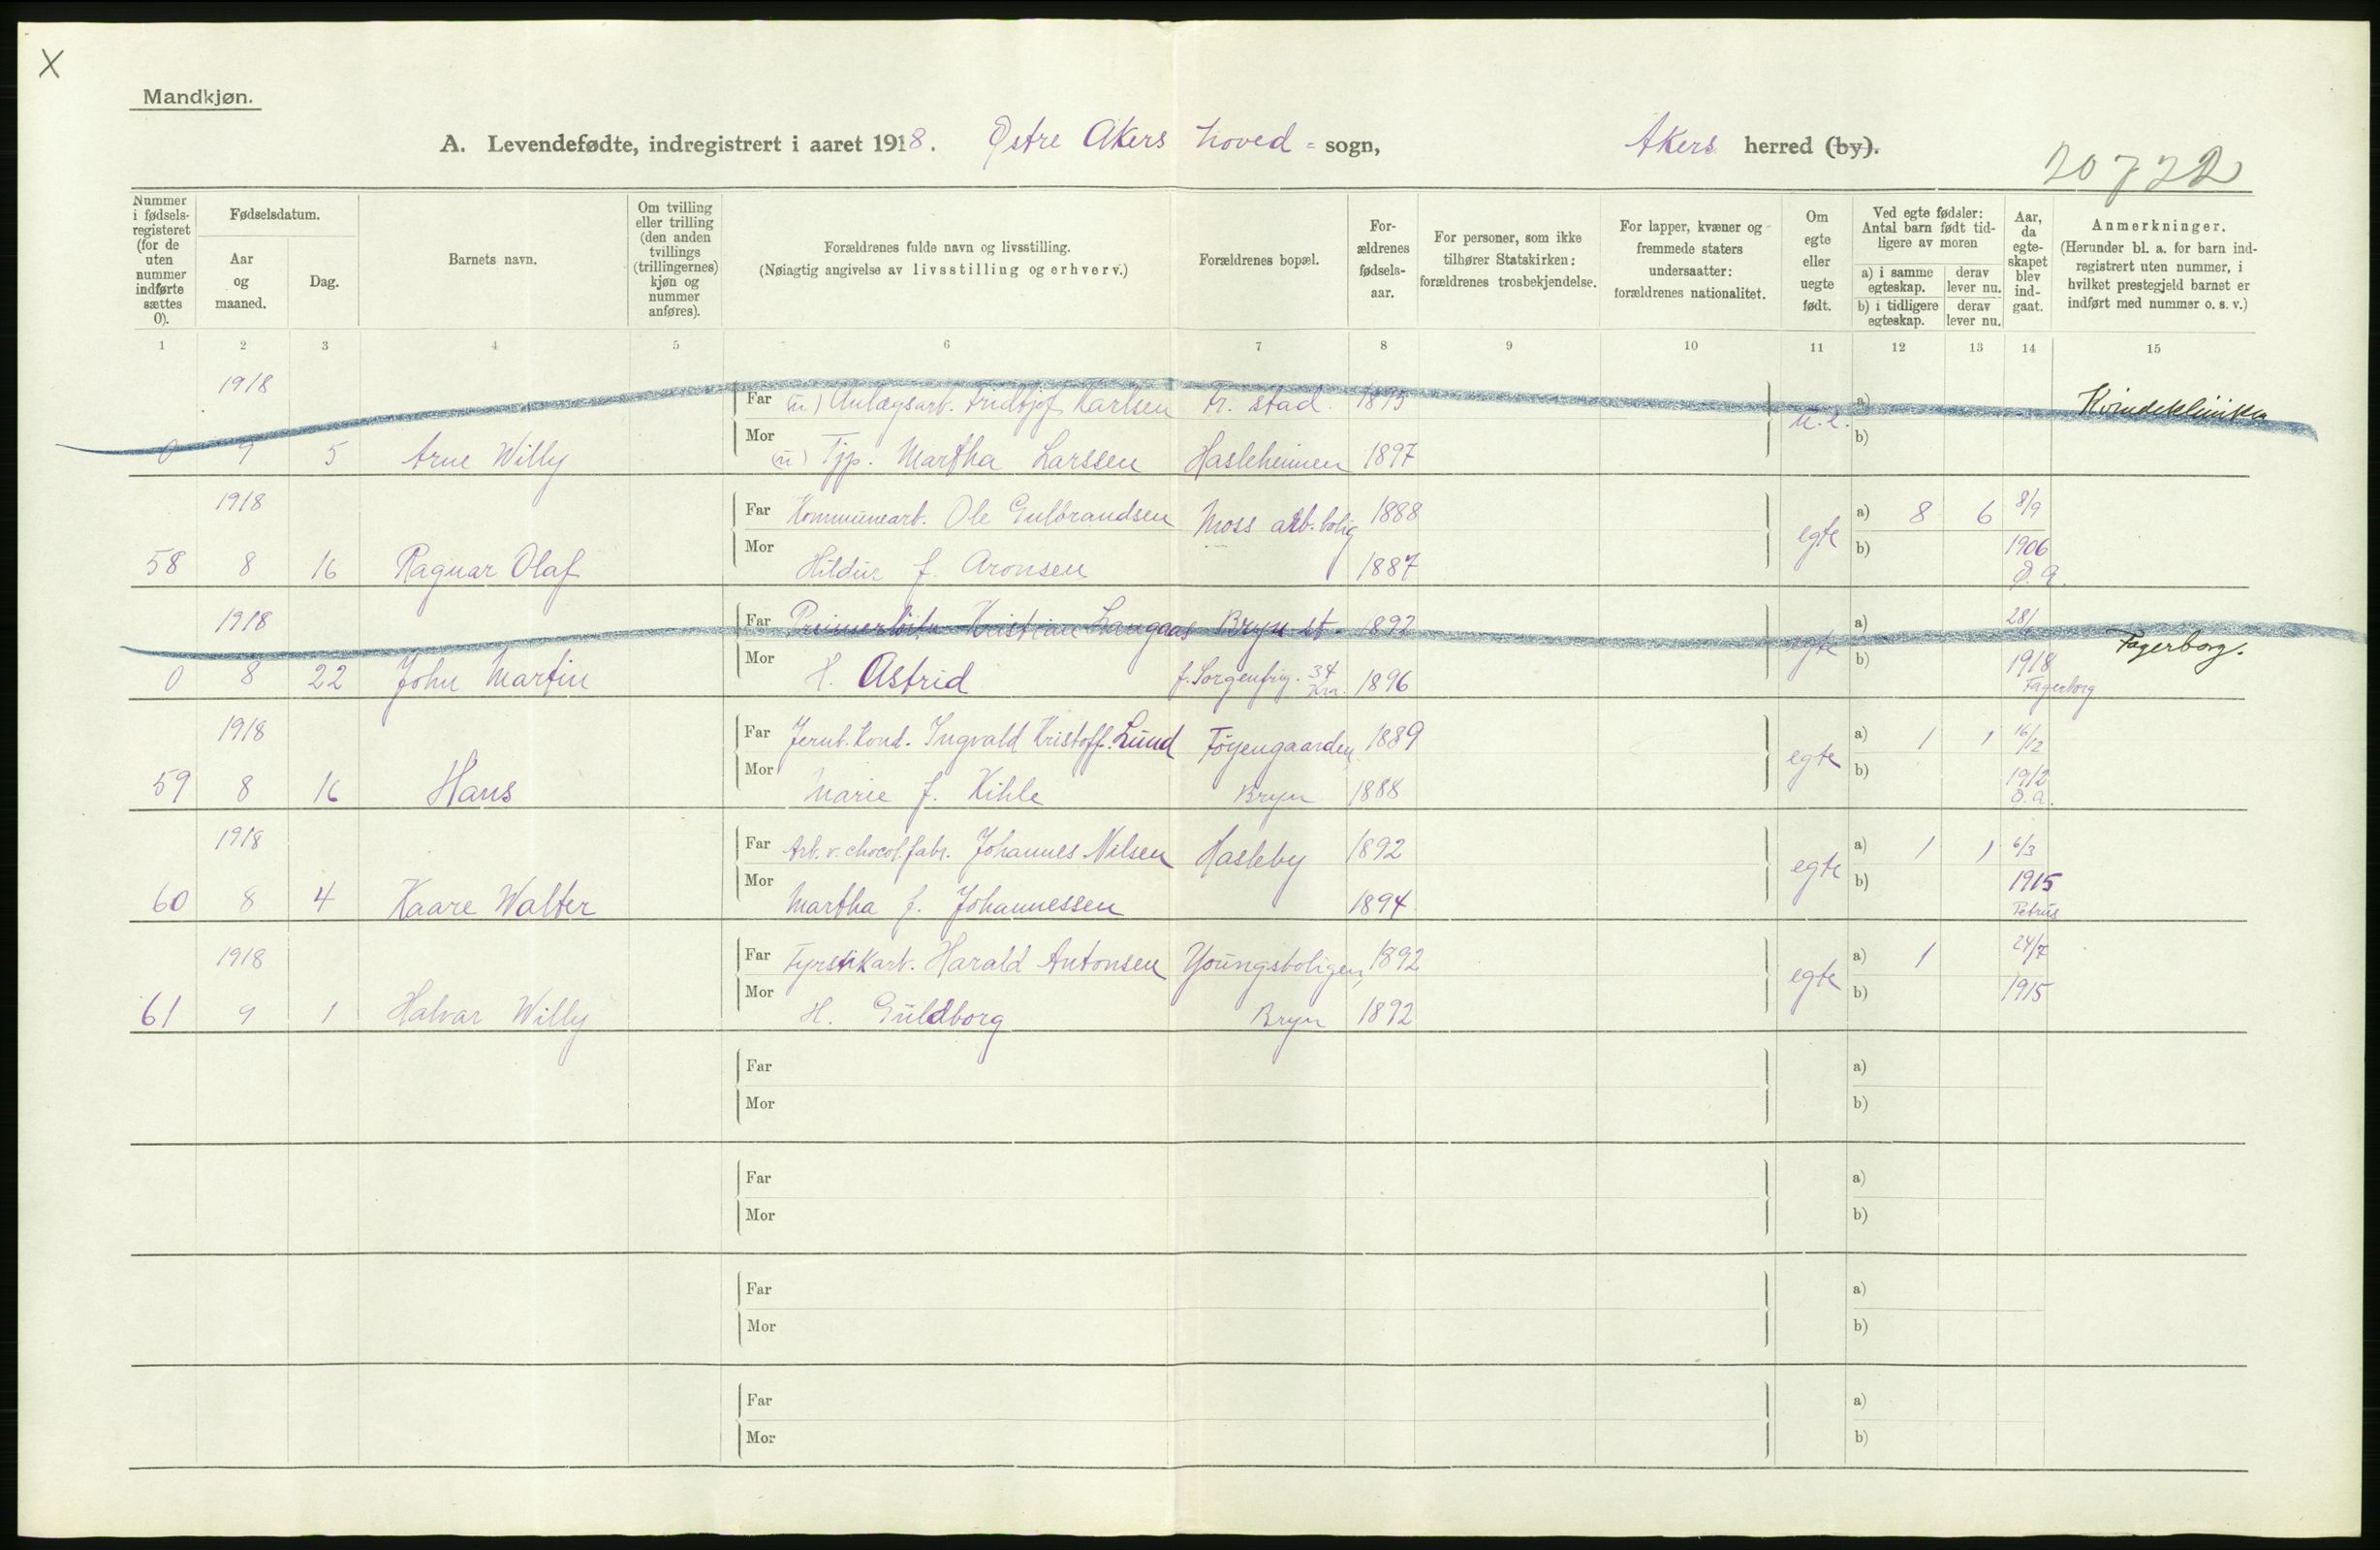 X
Mandkjøn.
A. Levendefødte, indregistrert i aaret 1918. Østre Akers hoved = sogn, Akers herred (by).
20722
Nummer i fødsels-registeret (for de uten nummer indførte sættes 0).
Fødselsdatum.
Aar og maaned.
Dag.
Barnets navn.
Om tvilling eller trilling (den anden tvillings (trillingernes) kjøn og nummer anføres).
Forældrenes fulde navn og livsstilling.
(Nøiagtig angivelse av livsstilling og erhverv.)
Forældrenes bopæl.
For-ældrenes fødsels-aar.
For personer, som ikke tilhører Statskirken: forældrenes trosbekjendelse.
For lapper, kvæner og fremmede staters undersaatter: forældrenes nationalitet.
Om egte eller uegte født.
Ved egte fødsler: Antal barn født tid-ligere av moren
a) i samme egteskap. derav lever nu.
b) i tidligere egteskap. derav lever nu.
Aar, da egte-skapet blev ind-gaat.
Anmerkninger.
(Herunder bl. a. for barn ind-registrert uten nummer, i hvilket prestegjeld barnet er indført med nummer o. s. v.)
1 2 3 4 5 6 7 8 9 10 11 12 13 14 15
1918
Far (u) Anlægsarb. Fridtjof Karlsen Fr. stad. 1895 u.e. a) Kvindeklinikken
0 9 5 Arne Willy Mor (u) Tjp. Martha Larssen Hasleheimen 1897 b)
1918
Far Kommunearb. Ole Gulbrandsen Moss arb. bolig 1888 egte a) 8 6 8/9
58 8 16 Ragnar Olaf Mor Hildur f. Aronsen 1887 b) 1906
Ø. A.
1918
Far Kristian Langaas Bryn st. 1892 egte a) 28/
0 8 22 John Martin Mor H. Astrid f. Sorgenfrig. 34 Kra. 1896 b) 1918
Fagerborg
Fagerborg.
1918
Far Jernb. Kond. Ingvald Kristoff. Lund Tøyengaarden, 1889 egte a) 1 1 16/12
59 8 16 Hans Mor Marie f. Kihle Bryn 1888 b) 1912
Ø. A.
1918
Far Arb. v. chocol. fabr. Johannes Nilsen Hasleby 1892 egte a) 1 1 6/3
60 8 4 Kaare Walter Mor Martha f. Johannessen 1894 b) 1915
Petrus
1918
Far Fyrstikarb. Harald Antonsen Youngsboligen, 1892 egte a) 1 24/7
61 9 1 Halvar Willy Mor H. Guldborg Bryn 1892 b) 1915
Far a)
Mor b)
Far a)
Mor b)
Far a)
Mor b)
Far a)
Mor b)